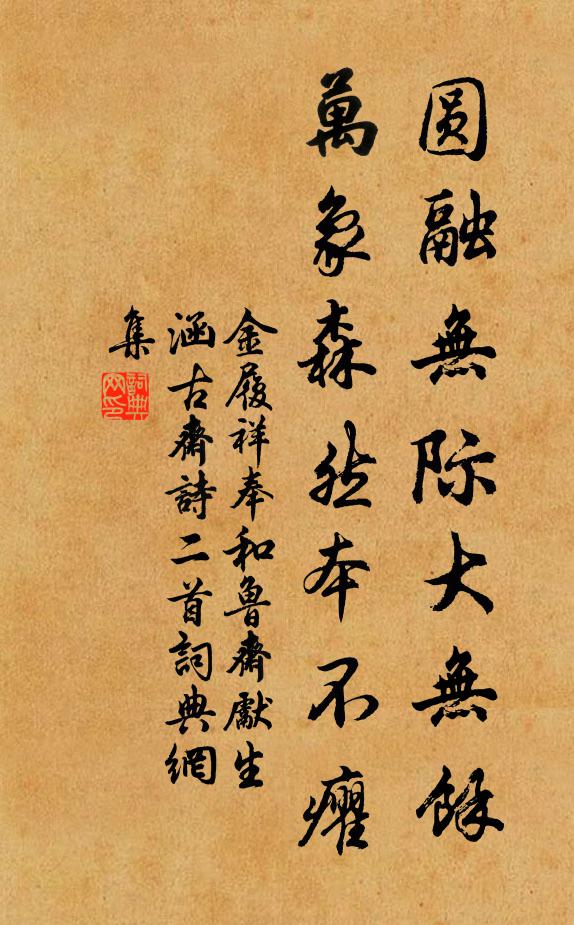 圆融無际大無餘
萬象森然本不癯
金履祥奉和魯齋獻生
涵古齋詩二首詞典網
集
詞典网印